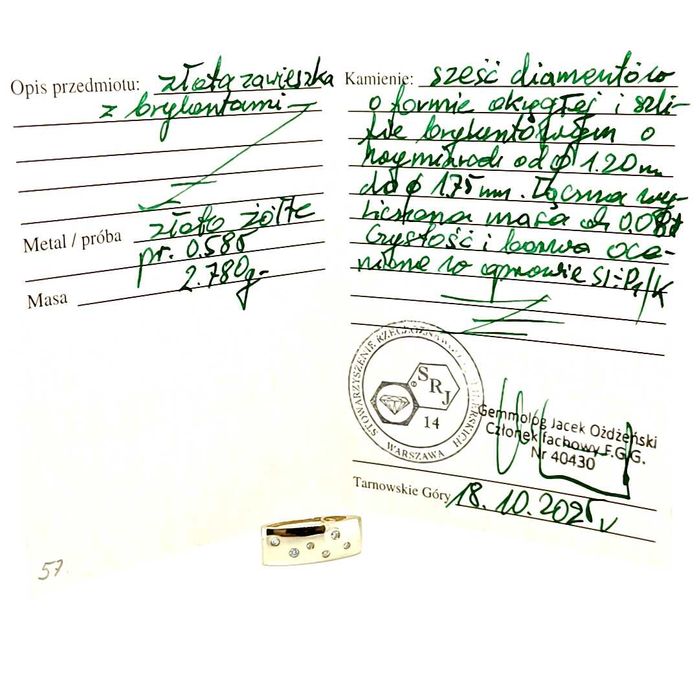 Opis przedmiotu: złota zawieszka
z brylantami
Metal / próba złoto żółte
pr. 0.585
Masa 2.780g
57.
Kamienie: sześć diamentów
o formie okrągłej i szli-
fie brylantowym o
rozmiarach od ϕ 1.20 mm
do ϕ 1.75 mm. Łączna wy-
liczona masa ok. 0.08ct
Czystość i barwa oce-
nione w oprawie SI÷P1/K
STOWARZYSZENIE RZECZOZNAWCÓW JUBILERSKICH
SRJ
14
WARSZAWA
Gemmolog Jacek Ożdżeński
Członek fachowy F.G.G.
Nr 40430
Tarnowskie Góry, 18.10.2025 r